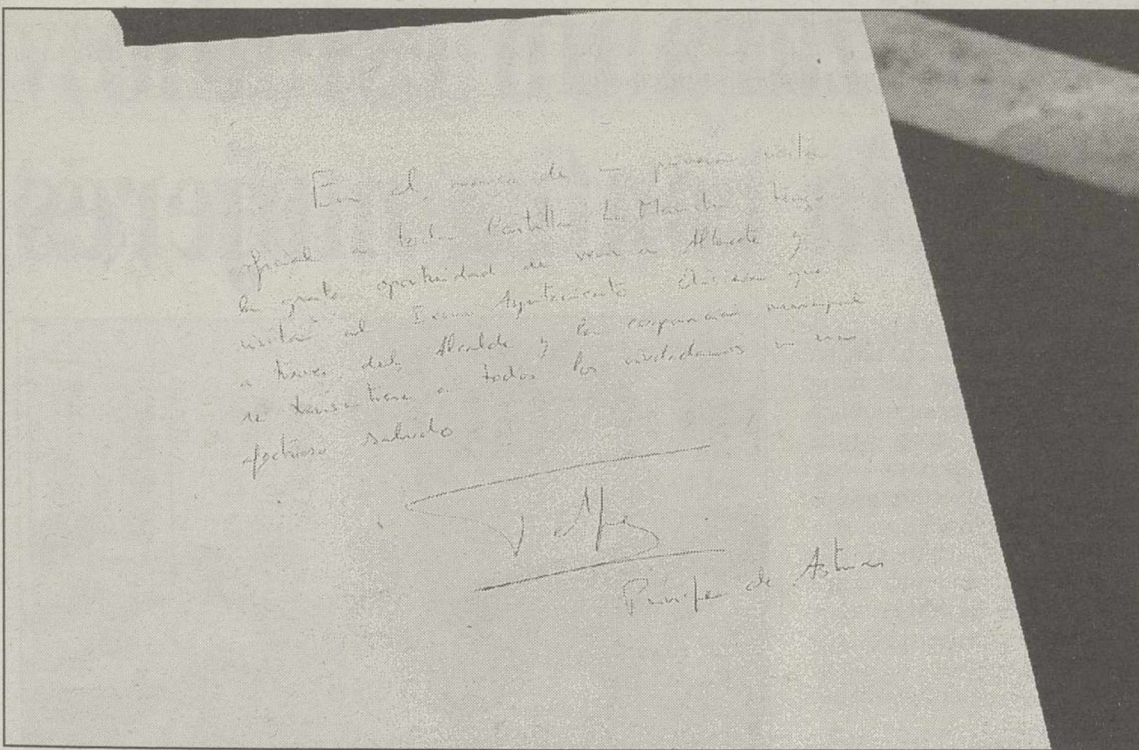 En el marco de mi primera visita
oficial a toda Castilla La Mancha tengo
la grata oportunidad de venir a Albacete y
visitar el Excmo Ayuntamiento que
a traves del Alcalde y la corporación municipal
se transmitiera a todos los ciudadanos un muy
afectuoso saludo
Principe de Asturias